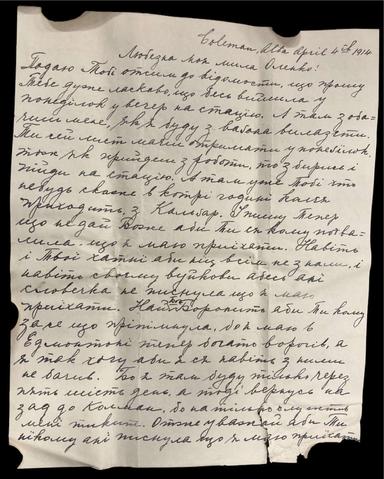 Coleman, Alta April 4th 1914
Любезна моя мила Оленко!
Подаю Тобі отсим до відомости, що прошу
Тебе дуже ласкаво, щобесь вийшла у
понеділок у вечер на стацию. А там зоба-
чиш мене, як я буду з вагона вилазити.
Ти сей лист маєш отримати у понеділок.
то як прийдеш з роботи, то зберись і
пійди на стацию. А там уже Тобі хто
небудь скаже в котрі годині
приходить з Калґар. І прошу Тепер
що не дай Боже аби Ти ся кому похва-
лила що я маю приїхати. Навіть
і Твої хатні аби ніц всім не знали, і
навіть своєму вуйкови абесь ані
словечка не писнула що я маю
приїхати. Най Бог боронить аби Ти кому
за це що прітмнула, бо я маю в
Едмонтоні тепер богато ворогів, а
я так хочу аби я ся навіть з ними
не бачив. Бо я там буду тілько через
пять шість день, а тоді вернусь на
зад до Колман, бо на тілько
мені тикит. Отже уважай аби Ти
нікому ані писнула що я маю приїхати